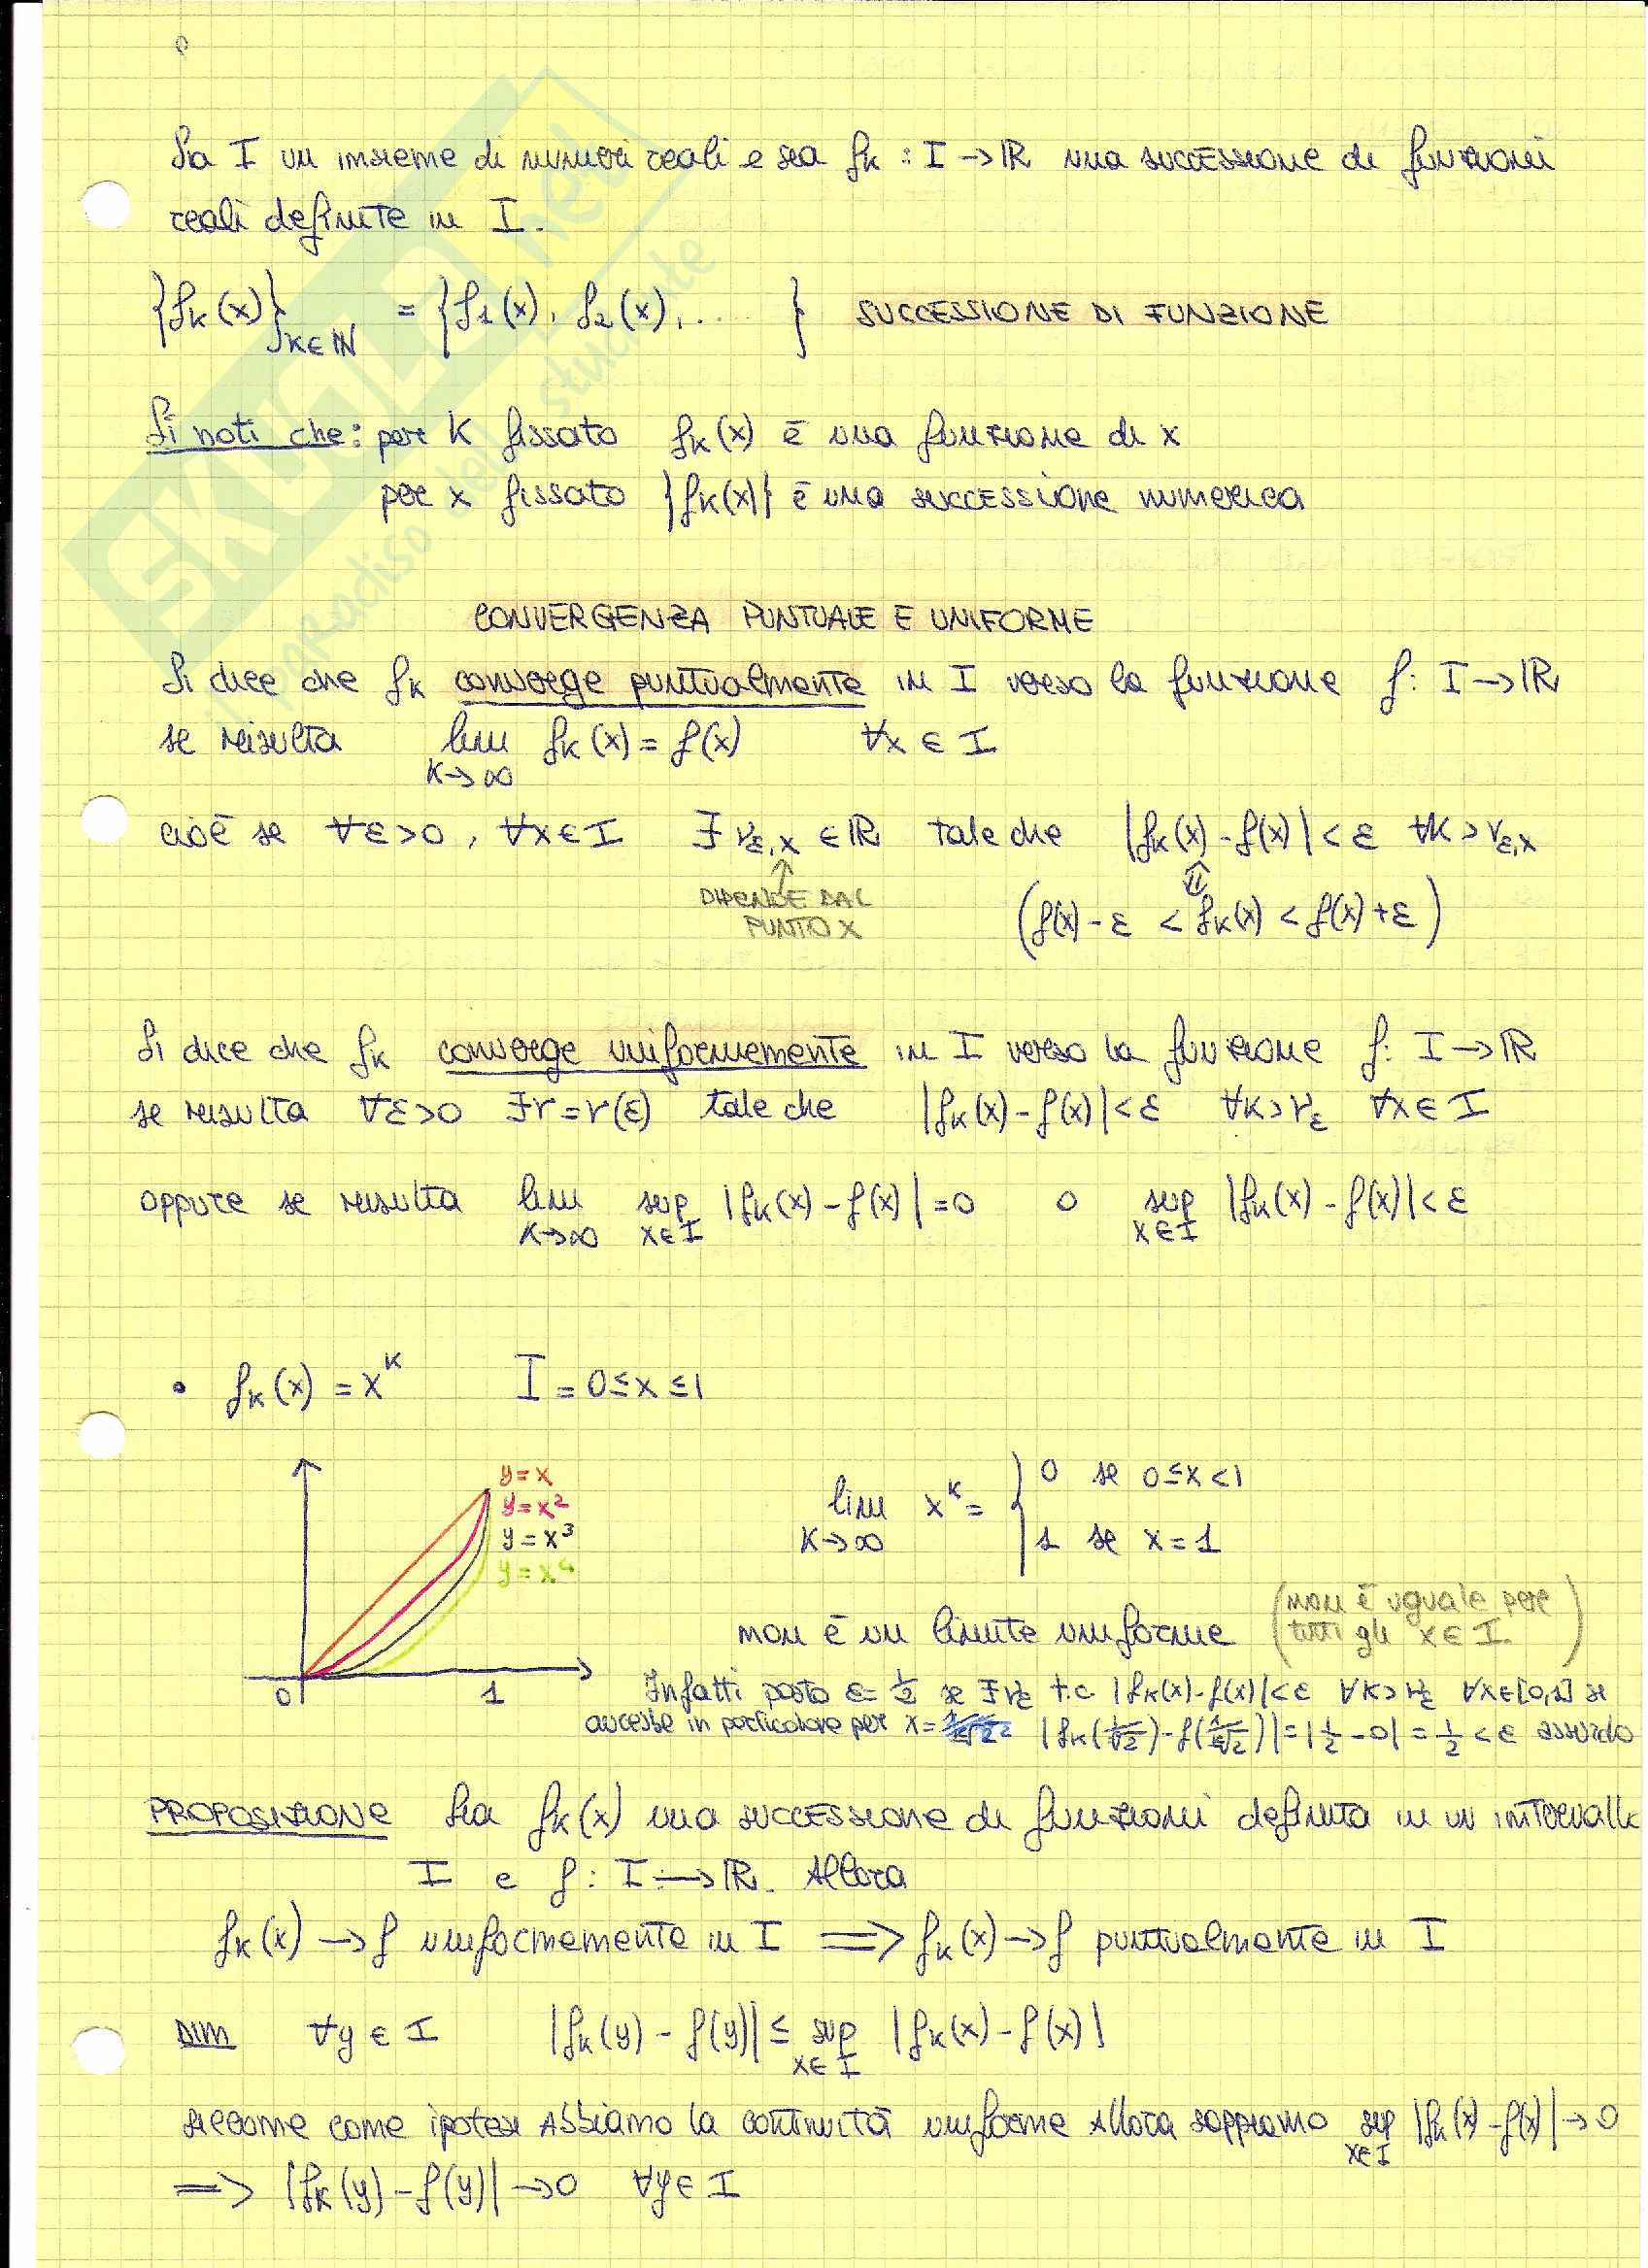 Sia I un insieme di numeri reali e sia fk : I → ℝ una successione di funzioni
reali definite in I.
{fk(x)}k∈ℕ = {f1(x), f2(x), ... } SUCCESSIONE DI FUNZIONE
Si noti che: per k fissato fk(x) è una funzione di x
per x fissato {fk(x)} è una successione numerica
CONVERGENZA PUNTUALE E UNIFORME
Si dice che fk converge puntualmente in I verso la funzione f: I → ℝ
se risulta lim k→∞ fk(x) = f(x) ∀x ∈ I
cioè se ∀ε>0, ∀x∈I ∃ νε,x ∈ ℝ tale che |fk(x) - f(x)| < ε ∀k > νε,x
DIPENDE DAL
PUNTO X
(f(x) - ε < fk(x) < f(x) + ε)
Si dice che fk converge uniformemente in I verso la funzione f: I → ℝ
se risulta ∀ε>0 ∃ν = ν(ε) tale che |fk(x) - f(x)| < ε ∀k > νε ∀x ∈ I
oppure se risulta lim k→∞ sup x∈I |fk(x) - f(x)| = 0 o sup x∈I |fk(x) - f(x)| < ε
• fk(x) = x^k I = 0 ≤ x ≤ 1
y = x
y = x²
y = x³
y = x⁴
0 1
lim k→∞ x^k = { 0 se 0 ≤ x < 1
1 se x = 1
non è un limite uniforme (non è uguale per
tutti gli x ∈ I.)
Infatti posto ε = 1/2 se ∃ νε t.c. |fk(x) - f(x)| < ε ∀k > νε ∀x ∈ [0,1] si
avrebbe in particolare per x = |fk(1/ᵏ√2) - f(1/ᵏ√2)| = |1/2 - 0| = 1/2 < ε assurdo
PROPOSIZIONE Sia fk(x) una successione di funzioni definita in un intervallo
I e f : I → ℝ. Allora
fk(x) → f uniformemente in I ⟹ fk(x) → f puntualmente in I
DIM ∀y ∈ I |fk(y) - f(y)| ≤ sup x∈I |fk(x) - f(x)|
siccome come ipotesi Abbiamo la continuità uniforme Allora sappiamo sup x∈I |fk(x) - f(x)| → 0
⟹ |fk(y) - f(y)| → 0 ∀y ∈ I
SKUOLA.net
Il paradiso dello studente